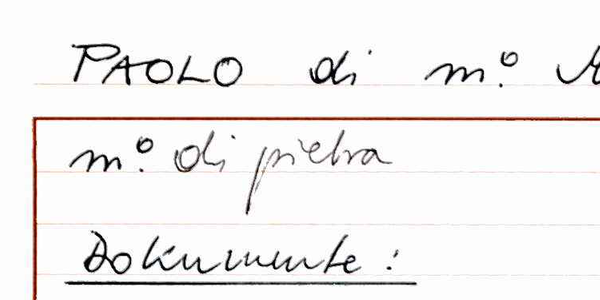 PAOLO di m.º
m.º di pietra
Dokumente: